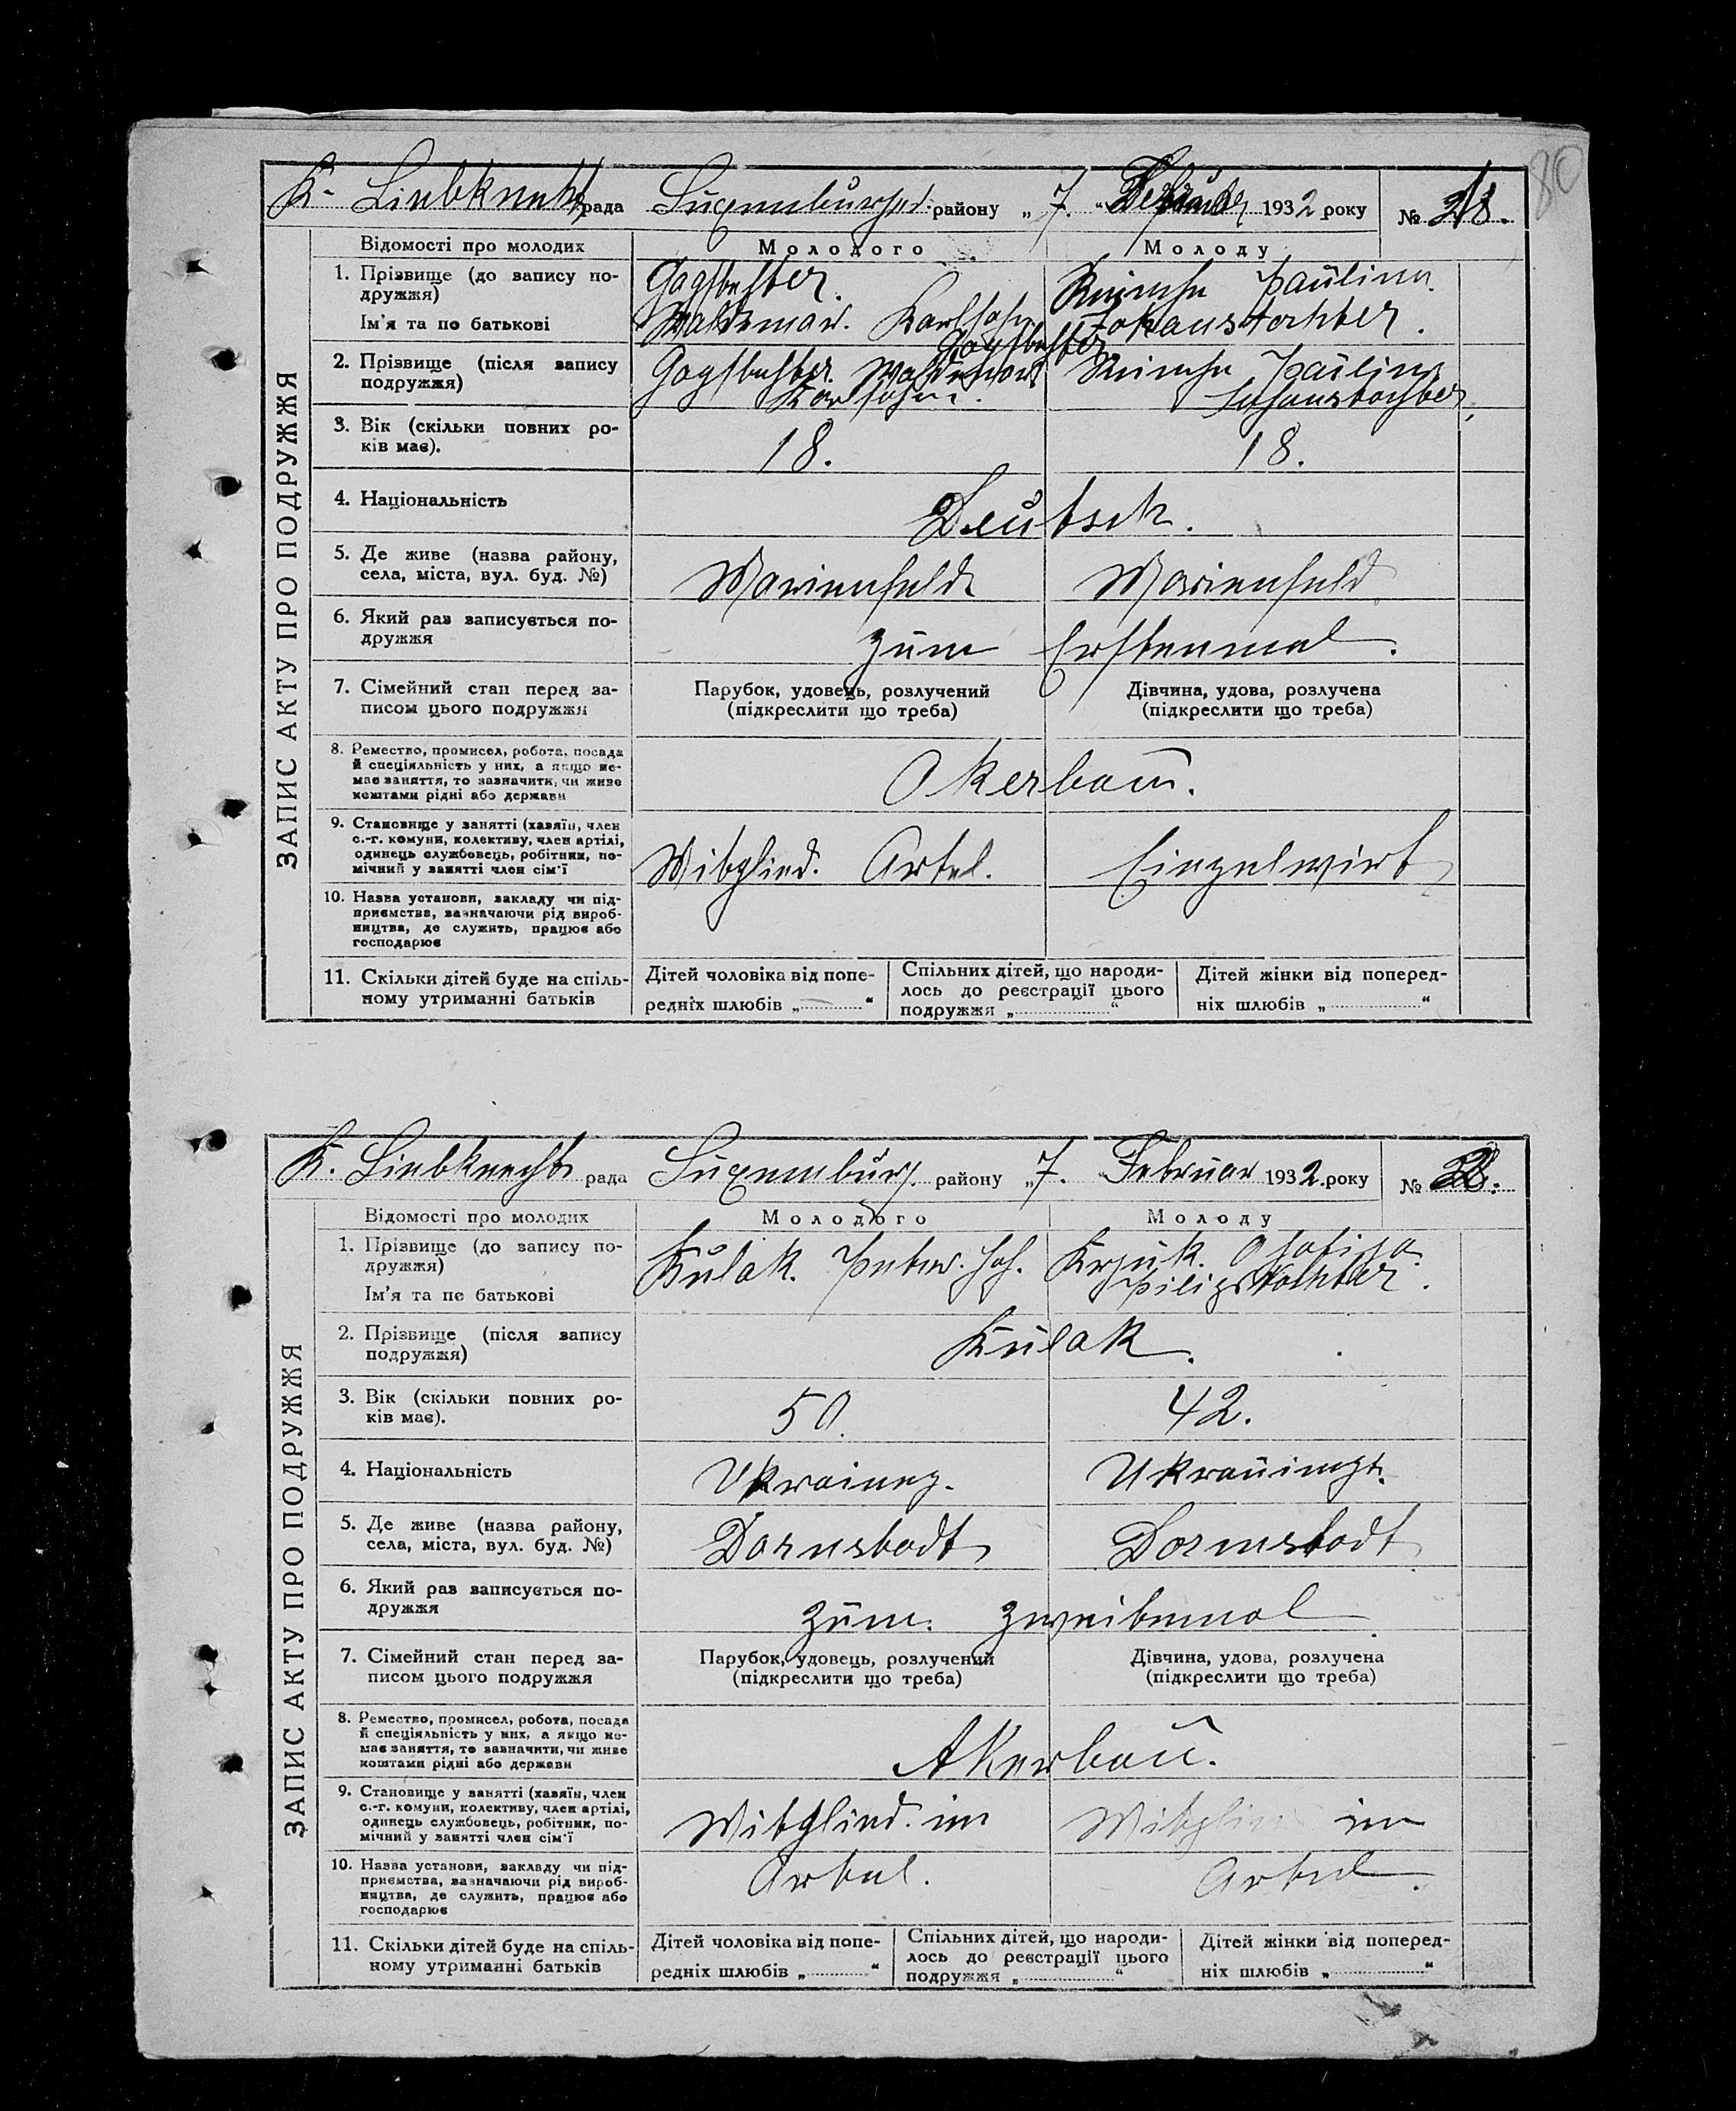 80
K. Liebknecht рада Luxemburger району „7.“ 1932 року №
ЗАПИС АКТУ ПРО ПОДРУЖЖЯ
Відомості про молодих Молодого Молоду
1. Прізвище (до запису по-
дружжя)
Ім'я та по батькові
Waldemar. Karlsohn
Paulina
Johanstochter.
2. Прізвище (після запису
подружжя)
Waldemar
Karlsohn.
Paulina
Johanstochter
3. Вік (скільки повних ро-
ків має). 18. 18.
4. Національність Deutsch.
5. Де живе (назва району,
села, міста, вул. буд. №) Marienfeld Marienfeld
6. Який раз записується по-
дружжя zum Erstenmal.
7. Сімейний стан перед за-
писом цього подружжя
Парубок, удовець, розлучений
(підкреслити що треба)
Дівчина, удова, розлучена
(підкреслити що треба)
8. Ремество, промисел, робота, посада
й спеціяльність у них, а якщо не-
має заняття, то зазначити, чи живе
коштами рідні або держави
Okerbau.
9. Становище у занятті (хазяїн, член
с.-г. комуни, колективу, член артілі,
одинець службовець, робітник, по-
мічний у занятті член сім'ї
Mitglied. Artel. Einzelwirt
10. Назва установи, закладу чи під-
приємства, зазначаючи рід вироб-
ництва, де служить, працює або
господарює
11. Скільки дітей буде на спіль-
ному утриманні батьків
Дітей чоловіка від попе-
редніх шлюбів „ “
Спільних дітей, що народи-
лось до реєстрації цього
подружжя „ “
Дітей жінки від поперед-
ніх шлюбів „ “
K. Liebknecht рада Luxemburg. району „7. “ Februar 1932. року №
ЗАПИС АКТУ ПРО ПОДРУЖЖЯ
Відомості про молодих Молодого Молоду
1. Прізвище (до запису по-
дружжя)
Ім'я та по батькові
Kulak. Peter. Joh.
Krjuk.
2. Прізвище (після запису
подружжя) Kulak.
3. Вік (скільки повних ро-
ків має). 50. 42.
4. Національність Ukrainez. Ukrauinzt.
5. Де живе (назва району,
села, міста, вул. буд. №) Darmstadt Darmstadt
6. Який раз записується по-
дружжя zum. zweitenmal
7. Сімейний стан перед за-
писом цього подружжя
Парубок, удовець, розлучений
(підкреслити що треба)
Дівчина, удова, розлучена
(підкреслити що треба)
8. Ремество, промисел, робота, посада
й спеціяльність у них, а якщо не-
має заняття, то зазначити, чи живе
коштами рідні або держави
Akerbau.
9. Становище у занятті (хазяїн, член
с.-г. комуни, колективу, член артілі,
одинець службовець, робітник, по-
мічний у занятті член сім'ї
Mitglied. im Mitglied im
10. Назва установи, закладу чи під-
приємства, зазначаючи рід вироб-
ництва, де служить, працює або
господарює
Artel. Artel.
11. Скільки дітей буде на спіль-
ному утриманні батьків
Дітей чоловіка від попе-
редніх шлюбів „ “
Спільних дітей, що народи-
лось до реєстрації цього
подружжя „ “
Дітей жінки від поперед-
ніх шлюбів „ “